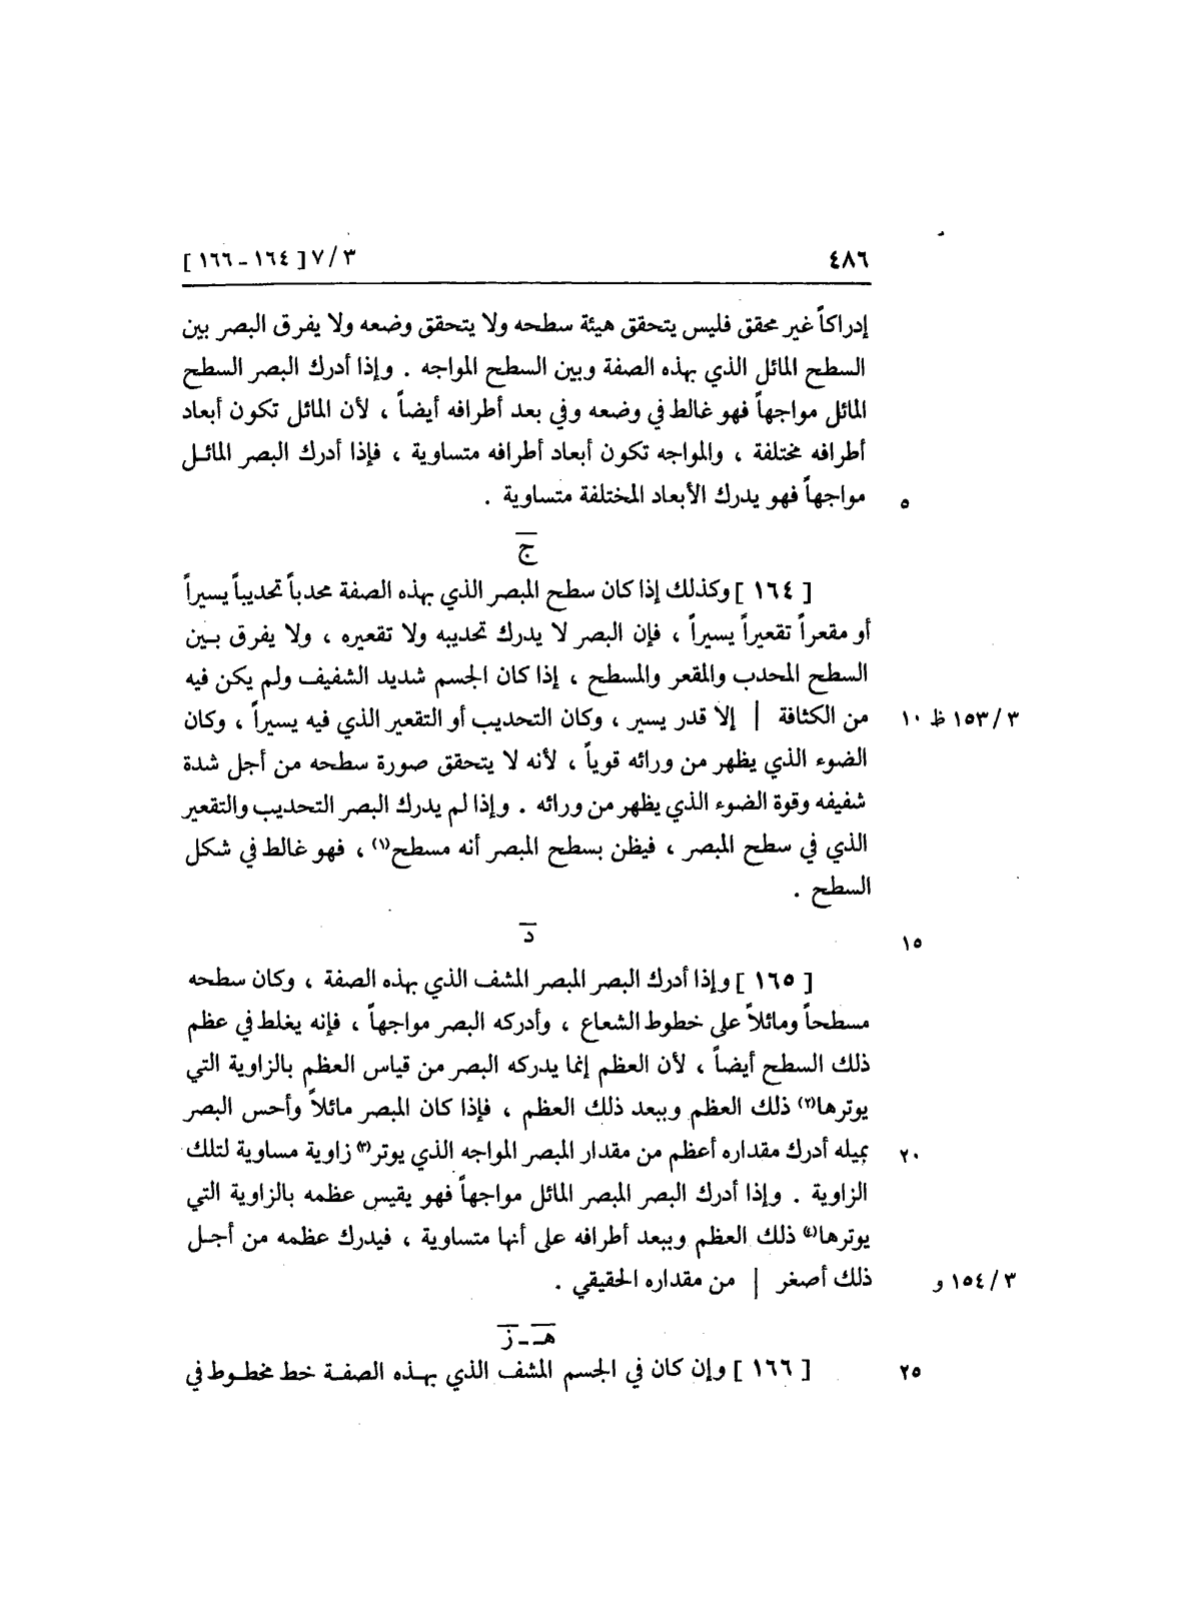 ٤٨٦ ٧/٣ [ ١٦٤ – ١٦٦ ]
إدراكاً غير محقق فليس يتحقق هيئة سطحه ولا يتحقق وضعه ولا يفرق البصر بين
السطح المائل الذي بهذه الصفة وبين السطح المواجه . وإذا أدرك البصر السطح
المائل مواجهاً فهو غالط في وضعه وفي بعد أطرافه أيضاً ، لأن المائل تكون أبعاد
أطرافه مختلفة ، والمواجه تكون أبعاد أطرافه متساوية ، فإذا أدرك البصر المائل
مواجهاً فهو يدرك الأبعاد المختلفة متساوية . ٥
ج
[ ١٦٤ ] وكذلك إذا كان سطح المبصر الذي بهذه الصفة محدباً تحديباً يسيراً
أو مقعراً تقعيراً يسيراً ، فإن البصر لا يدرك تحديبه ولا تقعيره ، ولا يفرق بين
السطح المحدب والمقعر والمسطح ، إذا كان الجسم شديد الشفيف ولم يكن فيه
من الكثافة | إلا قدر يسير ، وكان التحديب أو التقعير الذي فيه يسيراً ، وكان ١٠ ٣/ ١٥٣ ظ
الضوء الذي يظهر من ورائه قوياً ، لأنه لا يتحقق صورة سطحه من أجل شدة
شفيفه وقوة الضوء الذي يظهر من ورائه . وإذا لم يدرك البصر التحديب والتقعير
الذي في سطح المبصر ، فيظن بسطح المبصر أنه مسطح(١) ، فهو غالط في شكل
السطح .
د ١٥
[ ١٦٥ ] وإذا أدرك البصر المبصر المشف الذي بهذه الصفة ، وكان سطحه
مسطحاً ومائلاً على خطوط الشعاع ، وأدركه البصر مواجهاً ، فإنه يغلط في عظم
ذلك السطح أيضاً ، لأن العظم إنما يدركه البصر من قياس العظم بالزاوية التي
يوترها(٢) ذلك العظم وببعد ذلك العظم ، فإذا كان المبصر مائلاً وأحس البصر
بميله أدرك مقداره أعظم من مقدار المبصر المواجه الذي يوتر(٣) زاوية مساوية لتلك ٢٠
الزاوية . وإذا أدرك البصر المبصر المائل مواجهاً فهو يقيس عظمه بالزاوية التي
يوترها(٤) ذلك العظم وببعد أطرافه على أنها متساوية ، فيدرك عظمه من أجل
ذلك أصغر | من مقداره الحقيقي . ٣/ ١٥٤ و
هـ – ز
[ ١٦٦ ] وإن كان في الجسم المشف الذي بهذه الصفة خط مخطوط في ٢٥